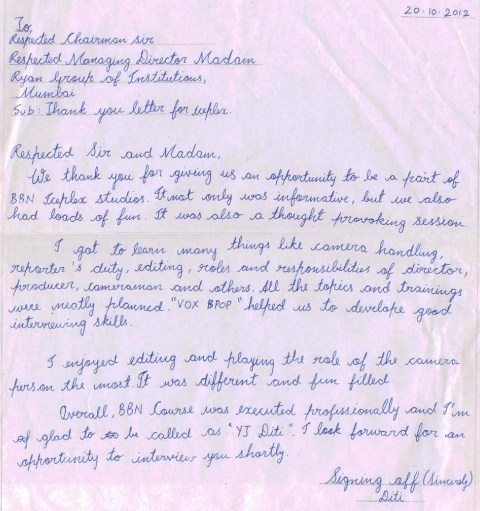 20.10.2012
To,
Respected Chairman sir
Respected Managing Director Madam
Ryan Group of Institutions,
Mumbai
Sub: Thank you letter for iceplex.
Respected Sir and Madam,
We thank you for giving us an opportunity to be a part of
BBN Iceplex studios. It not only was informative, but we also
had loads of fun. It was also a thought provoking session.
I got to learn many things like camera handling,
reporter's duty, editing, roles and responsibilities of director,
producer, cameraman and others. All the topics and trainings
were neatly planned. "VOX BPOP" helped us to develope good
interviewing skills.
I enjoyed editing and playing the role of the camera
person the most. It was different and fun filled
Overall, BBN Course was executed professionally and I'm
of glad to be called as "YJ Diti". I look forward for an
opportunity to interview you shortly.
Signing off (Sincerely)
Diti